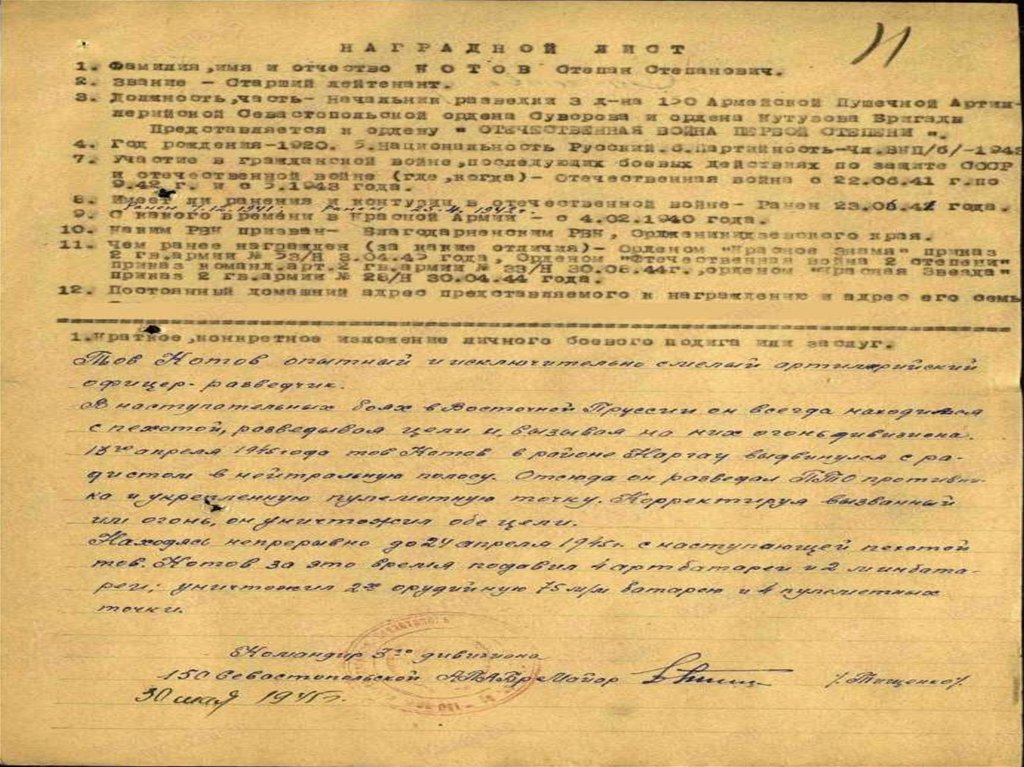 НАГРАДНОЙ ЛИСТ
1. Фамилия, имя и отчество КОТОВ Степан Степанович.
2. Звание - Старший лейтенант.
3. Должность, часть- начальник разведки 3 д-на 150 Армейской Пушечной Артил-
лерийской Севастопольской ордена Суворова и ордена Кутузова Бригады
Представляется к ордену " ОТЕЧЕСТВЕННАЯ ВОЙНА ПЕРВОЙ СТЕПЕНИ ".
4. Год рождения-1920. 5. Национальность Русский. 6. Партийность-Чл. ВКП/б/-1943
7. Участие в гражданской войне, последующих боевых действиях по защите СССР
и отечественной войне (где, когда)- Отечественная война с 22.06.41 г. по
9.42 г. и с 5.1943 года.
8. Имеет ли ранения и контузии в отечественной войне- Ранен 23.06.42 года.
9. С какого времени в Красной Армии - с 4.02.1940 года.
10. Каким РВК призван- Благодарненским РВК, Орджоникидзевского края.
11. Чем ранее награжден (за какие отличия)- Орденом "Красное Знамя" приказ
2 гв.армии № 53/Н 3.04.45 года, Орденом "Отечественная война 2 степени"
приказ команд.арт.2 гв.армии № 33/Н 30.06.44г., орденом "Красная Звезда"
Приказ 2 гв.армии № 28/Н 30.04.44 года.
12. Постоянный домашний адрес представляемого к награждению и адрес его семь
1. Краткое, конкретное изложение личного боевого подига или заслуг.
Тов Котов опытный и исключительно смелый артилерийский
офицер-разведчик.
В наступательных боях в Восточной Пруссии он всегда находился
с пехотой, разведывая цели и, вызывая на них огонь дивизиона.
апреля 1945 года тов Котов в районе Каргау выдвинулся с ра-
дистом в нейтральную полосу. Отсюда он разведал ПТО противни-
ка и укрепленную пулеметную точку. Корректируя вызванный
им огонь, он уничтожил обе цели.
Находясь непрерывно до 24 апреля 1945г. с наступающей пехотой
тов. Котов за это время подавил 4 артбатареи и 2 минбата-
реи; уничтожил 2х орудийную 75 м/м батарею и 4 пулеметных
точки.
Командир 3го дивизиона
150 Севастопольской АПАБр Майор /Тищенко/.
30 мая 1945г.